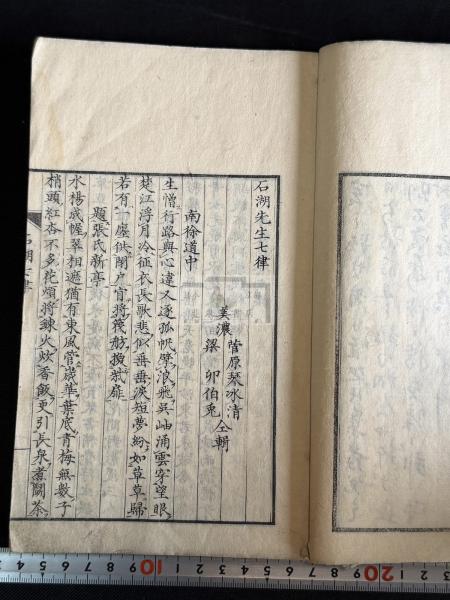 石湖先生七律
美濃 菅原琴冰清
梁 卯伯兎 仝輯
南徐道中
生憎行路與心違又逐孤帆擘浪飛吳岫涌雲穿望眼
楚江浮月冷征衣長歌悲似垂垂淚短夢紛如草草歸
若有一廛供閉戶肯將篾舫換柴扉
題張氏新亭
水楊成幄翠相遮猶有東風管歲華葉底青梅無數子
梢頭紅杏不多花煩將鍊火炊香飯更引長泉煮鬭茶
石湖七律
10
20